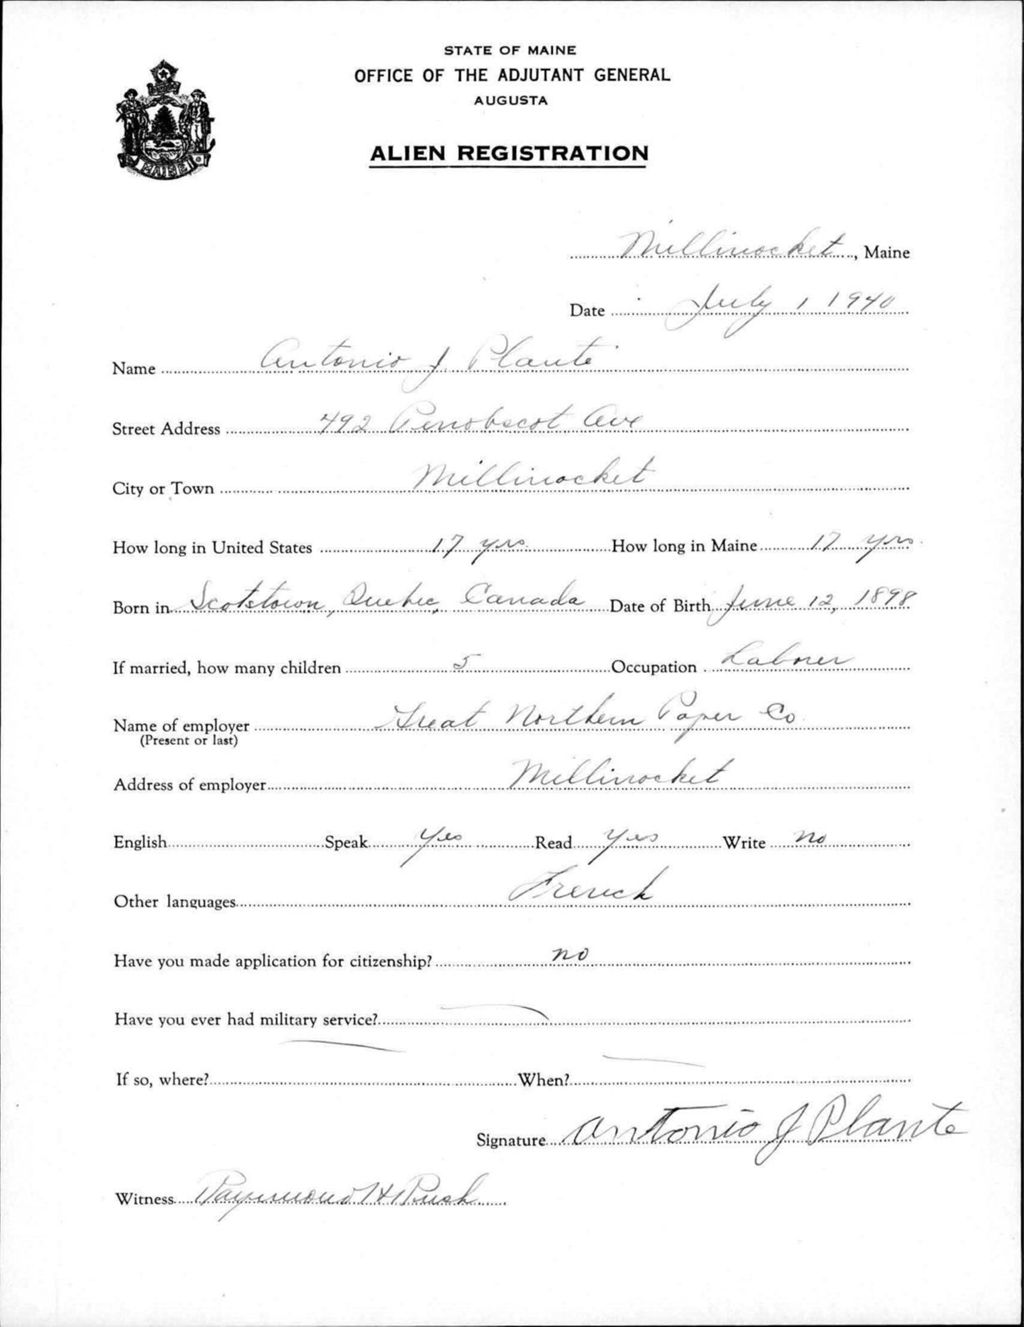 STATE OF MAINE
OFFICE OF THE ADJUTANT GENERAL
AUGUSTA
ALIEN REGISTRATION
MAINE
Millinocket, Maine
Date July 1 1940
Name Antonio J. Plante
Street Address 492 Penobscot Ave
City or Town Millinocket
How long in United States 17 yrs. How long in Maine 17 yrs.
Born in Scotstown, Quebec, Canada Date of Birth June 12, 1898
If married, how many children 5 Occupation Laborer
Name of employer Great Northern Paper Co.
(Present or last)
Address of employer Millinocket
English Speak Yes Read Yes Write no
Other languages French
Have you made application for citizenship? no
Have you ever had military service?
If so, where? When?
Signature Antonio J Plante
Witness Raymond H Rush